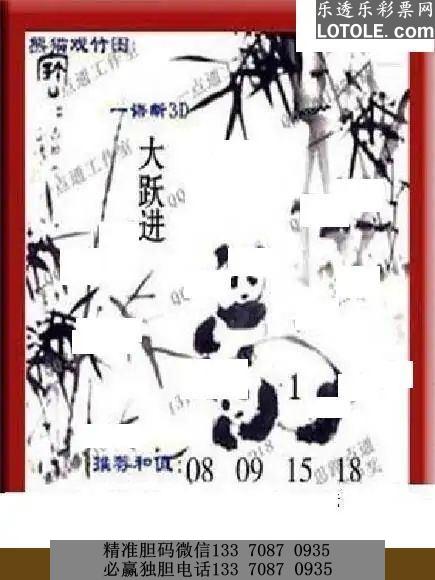 乐透乐彩票网
LOTOLE.COM
熊猫戏竹图:
一语断3D
大跃进
1
推荐和值:08 09 15 18
精准胆码微信133 7087 0935
必赢独胆电话133 7087 0935